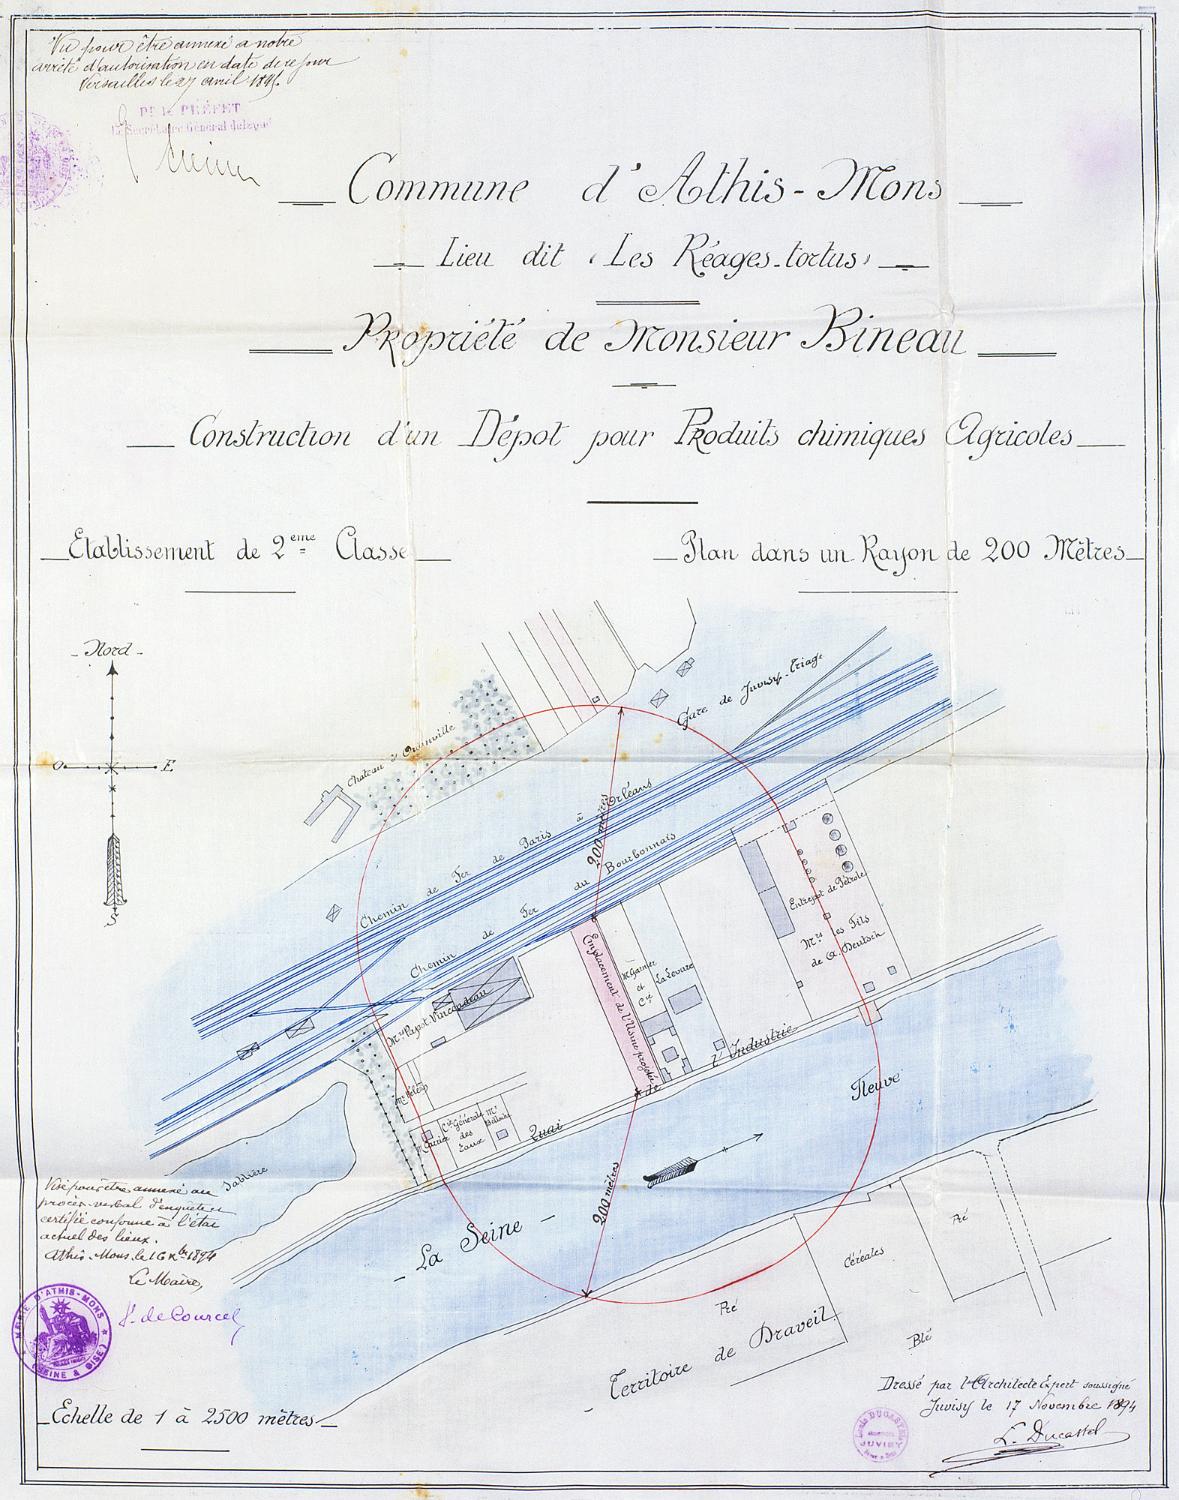 Vu pour être annexé à notre
arrêté d'autorisation en date de ce jour
Versailles le 27 avril 1895
Pr le PRÉFET
Le Secrétaire Général délégué
Commune d'Athis-Mons
Lieu dit "Les Réages-tortus"
Propriété de Monsieur Bineau
Construction d'un Dépot pour Produits chimiques Agricoles
Etablissement de 2ème Classe
Plan dans un Rayon de 200 Mètres
Nord
O
E
S
Château d'Ouinville
Gare de Juvisy-triage
Chemin de Fer de Paris à Orléans
Chemin de Fer du Bourbonnais
200 mètres
Entrepot de Pétrole
Mrs les Fils
de A. Deutsch
Emplacement de l'Usine projetée
Mr Garnier
et
Cie
La Louvre
Mrs Pépot Vincendeau
Mr
Cie Générale
des
Eaux
Mr
Quai de l'Industrie
Fleuve
Sablière
La Seine
200 mètres
Pré
Céréales
Pré
Blé
Territoire de Draveil
Visé pour être annexé au
procès-verbal d'enquête et
certifié conforme à l'état
actuel des lieux.
Athis-Mons le 16 Xbre 1894
Le Maire,
de Courcel
MAIRIE D'ATHIS-MONS
(SEINE & OISE)
Echelle de 1 à 2500 mètres
Dressé par l'Architecte Expert soussigné
Juvisy le 17 Novembre 1894
L. Ducastel
Louis DUCASTEL
JUVISY